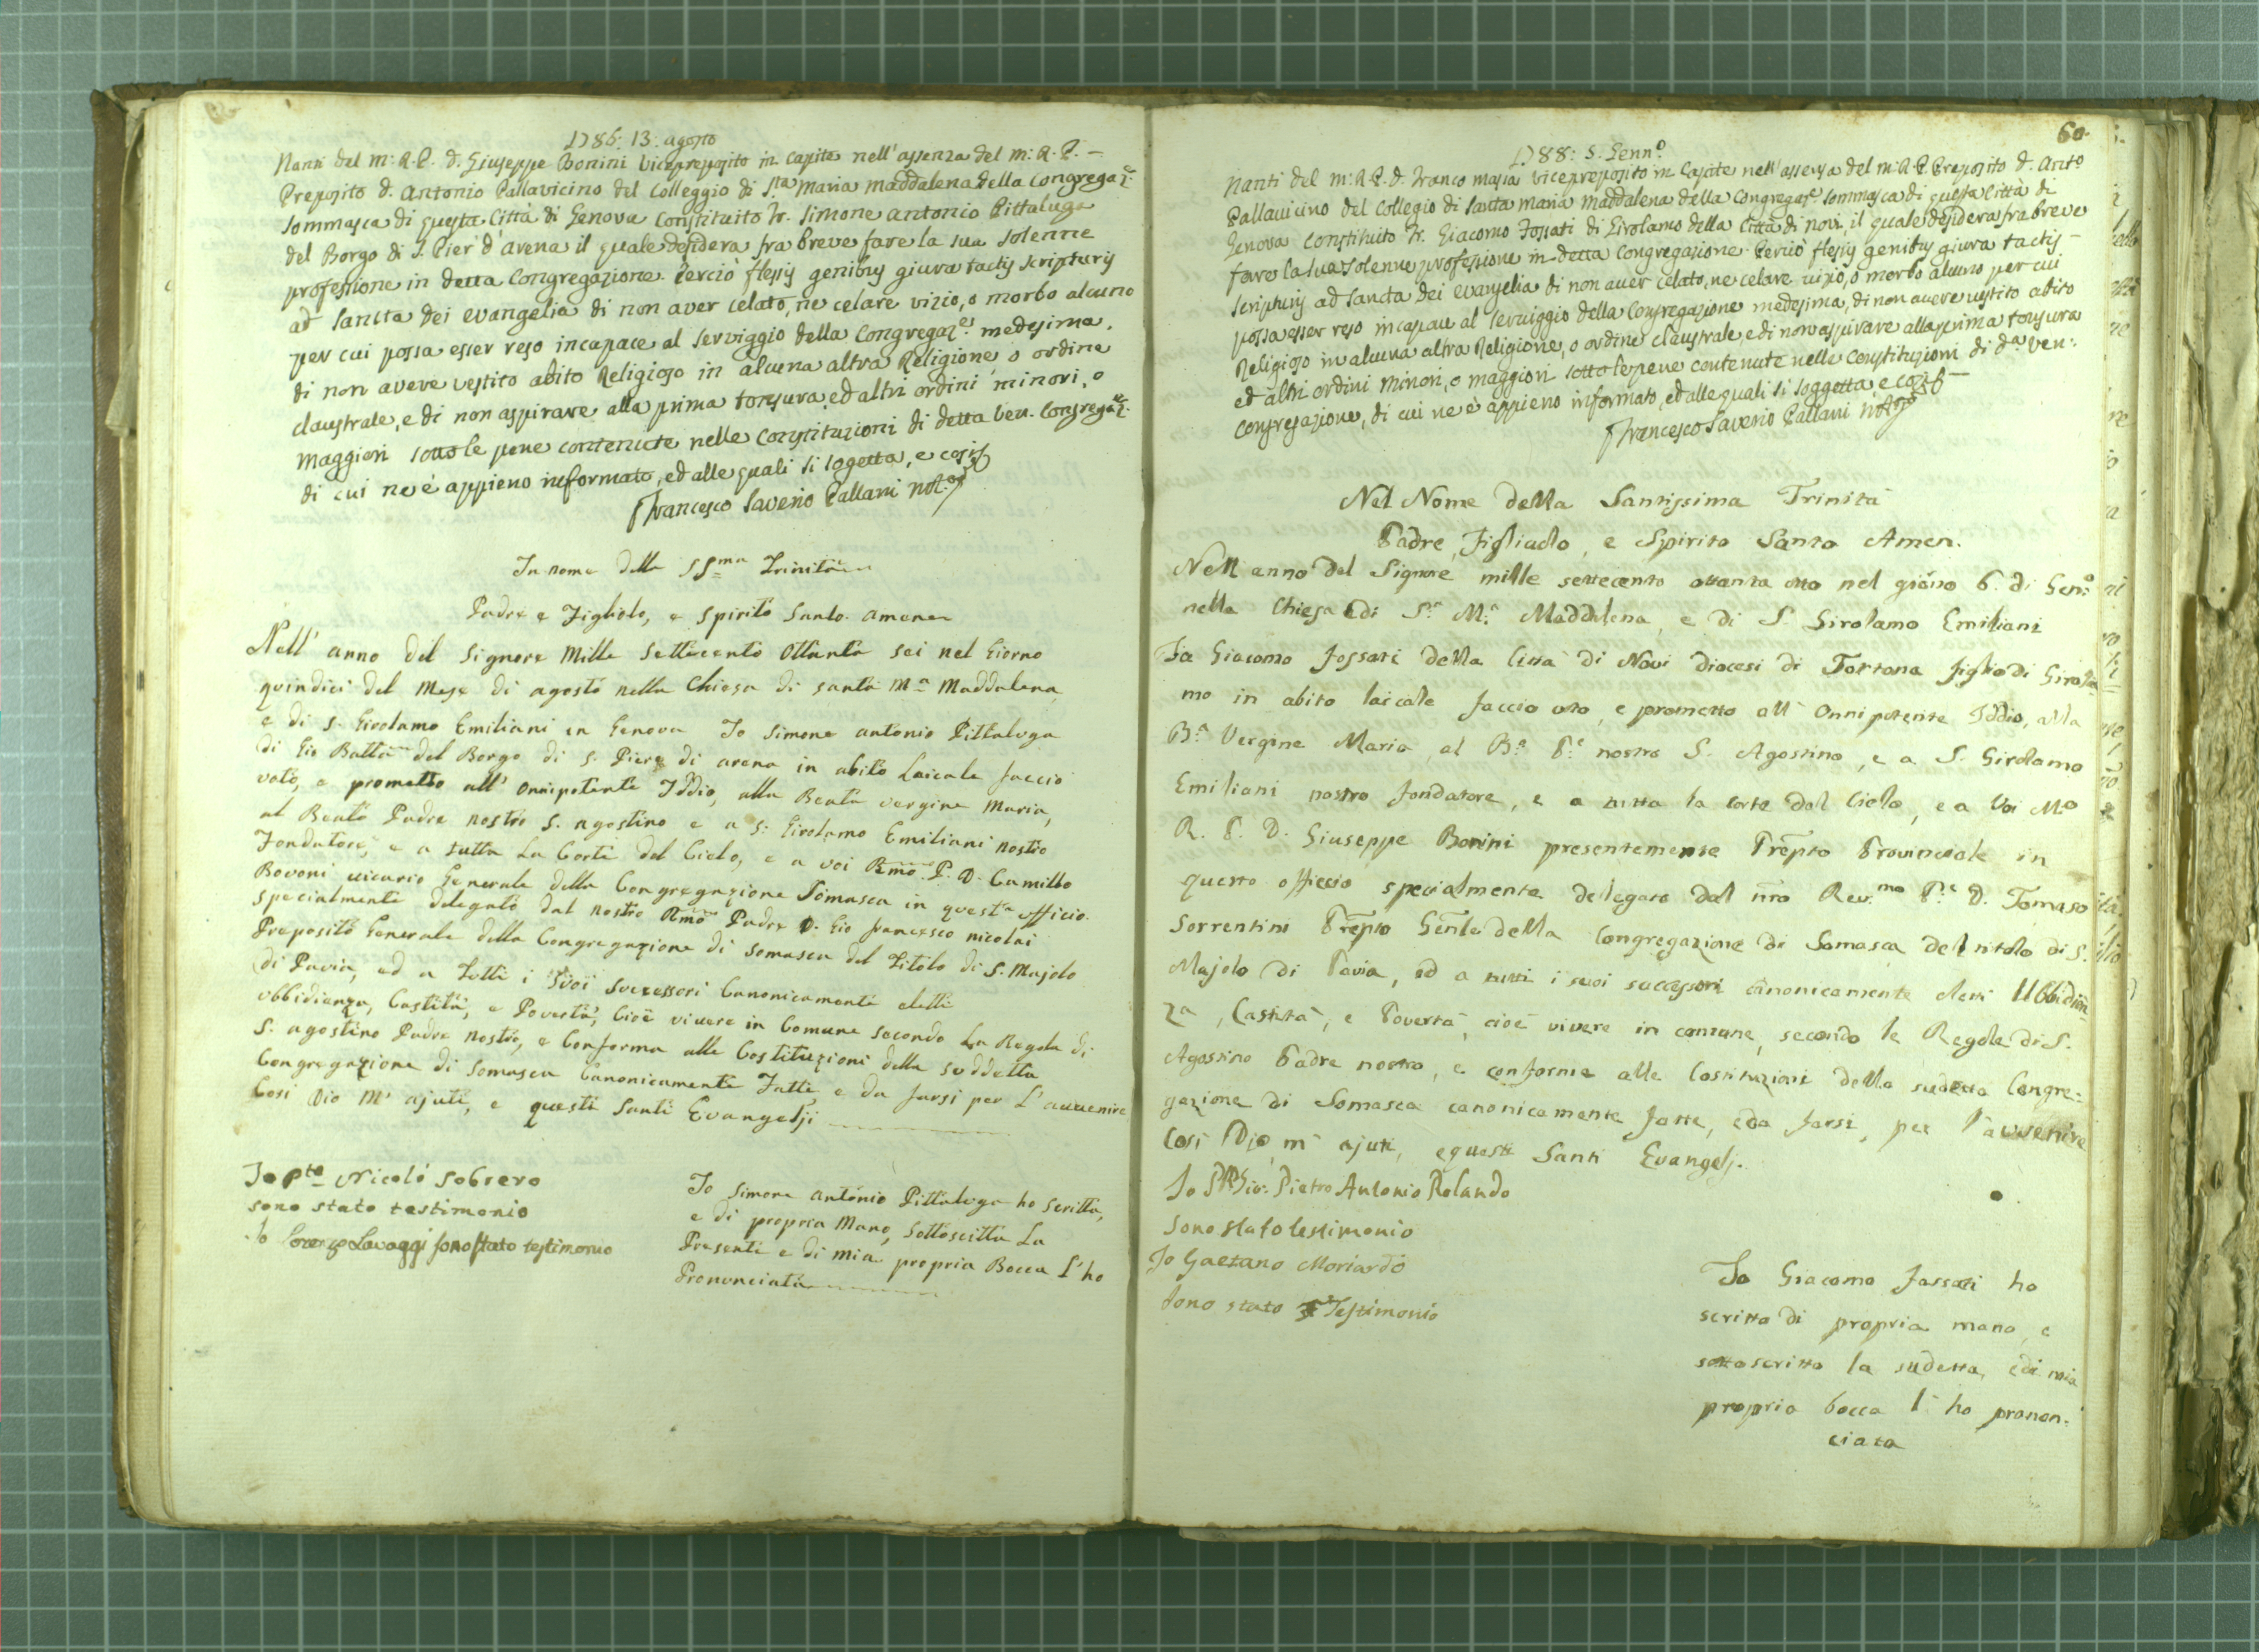 1786: 13: agosto
Nanti del m: R. P. d. Giuseppe Bonini Vicepreposito in Capite nell'assenza del m: R. P. –
Preposito d. Antonio Pallavicino del Colleggio di Sta Maria Maddalena della Congregaz.e
Sommasca di questa Città di Genova Constituito Fr. Simone Antonio Pittaluga
del Borgo di S. Pier d'arena il quale desidera fra breve fare la sua solenne
professione in detta Congregazione. Perciò flexis genibus giura tactis scripturis
ad Sancta Dei evangelia di non aver celato, ne celare vizio, o morbo alcuno
per cui possa esser reso incapace al servizzio della Congregaz.e medesima,
di non avere vestito abito Religioso in alcuna altra Religione, o ordine
claustrale, e di non aspirare alla prima tonsura, ed altri ordini minori, o
maggiori sotto le pene contenute nelle Constituzioni di detta Ven. Congregaz.e
di cui ne è appieno informato, ed alle quali si sogetta, e cosi
Francesco Saverio Pallani Not.o
In nome della SSma Trinità
Padre e Figliolo, e Spirito Santo. amen
Nell' anno del Signore Mille Settecento Ottanta sei nel Giorno
quindici del Mese di agosto nella Chiesa di santa Ma Maddalena
e di S. Girolamo Emiliani in Genova Io Simone antonio Pittaluga
di Gio Batta del Borgo di S. Piero di arena in abito Laicale faccio
voto, e prometto all' Onnipotente Iddio, alla Beata vergine Maria,
al Beato Padre nostro S. agostino e a S: Girolamo Emiliani nostro
Fondatore, e a tutta La Corte del Cielo, e a voi Rmo P. D. Camillo
Bovoni vicario Generale della Congregazione Somasca in questo officio
specialmente delegato dal nostro Rmo Padre D. Gio francesco nicolai
Preposito Generale della Congregazione di somasca del Titolo di S. Majolo
di Pavia, ed a Tutti i Suoi Successori Canonicamente eletti
ubbidienza, Castità, e Povertà, Cioè vivere in Comune secondo La Regola di
S. agostino Padre nostro, e Conforme alle Costituzioni della suddetta
Congregazione di Somasca Canonicamente Fatte, e da farsi per L'avvenire
Cosi Dio M' ajuti, e questi Santi Evangelji
Io Pte Nicolò Sobrero
sono stato testimonio
Io Lorenzo Lavaggi sono stato testimonio
Io Simone antonio Pittaluga ho scritta,
e di propria Mano, Sottoscitta La
Presente e di mia propria Bocca l'ho
Pronunciata
60.
1788: 5. Genn.o
Nanti del m: R. P. d. Franco Masia vicepreposito in Capite nell'assenza del m: R. P. Preposito d. Anto
Pallavicino del Collegio di Santa Maria Maddalena della Congregaz.e Sommasca di questa Città di
Genova Constituito Fr. Giacomo Fossati di Girolamo della Città di novi, il quale desidera fra breve
fare la sua solenne professione in detta Congregazione. Perciò flexis genibus giura tactis –
scripturis ad Sancta Dei evangelia di non aver celato, ne celare vizio, o morbo alcuno per cui
possa esser reso incapace al servizzio della Congregazione medesima, di non avere vestito abito
Religioso in alcuna altra Religione, o ordine claustrale, e di non aspirare alla prima tonsura
ed altri ordini minori, o maggiori sotto le pene contenute nelle Constituzioni di da Ven:
Congregazione, di cui ne è appieno informato, ed alle quali si soggetta e cosi –
Francesco Saverio Pallani Not.o
Nel Nome della Santissima Trinità
Padre, Figliuolo, e Spirito Santo Amen.
Nell anno del Signore mille settecento ottanta otto nel giorno 6. di Gen.o
nella Chiesa di S.a M.a Maddalena, e di S. Girolamo Emiliani
Io Giacomo Fossati della Città di Novi diocesi di Tortona figlio di Girola
mo in abito laicale faccio voto, e prometto all' Onnipotente Iddio, alla
B.a Vergine Maria, al B.o P.e nostro S. Agostino, e a S. Girolamo
Emiliani nostro fondatore, e a tutta la corte del Cielo, e a Voi Mo
R. P. D. Giuseppe Bonini presentemente Prepto Provinciale in
questo officcio specialmente dellegato dal nro Rev.mo P.e D. Tomaso
Sorrentini Prepto Gen̅le della Congregazione di Somasca del titolo di S.
Majolo di Pavia, ed a tutti i suoi successori canonicamente eletti Ubbidien
za, Castità, e Povertà, cioè vivere in comune, secondo le Regole di S.
Agostino Padre nostro, e conforme alle Costituzioni della sudetta Congre:
gazione di Somasca canonicamente fatte, e da farsi, per l'avvenire
Cosi Dio m' ajuti, e questi Santi Evangelj.
Io Pietro Antonio Rolando
sono stato testimonio
Io Gaetano Moriardo
sono stato Testimonio
Io Giacomo Fossati ho
scritto di propria mano, e
sottoscritto la sudetta, e di mia
propria bocca l' ho pronon:
ciata